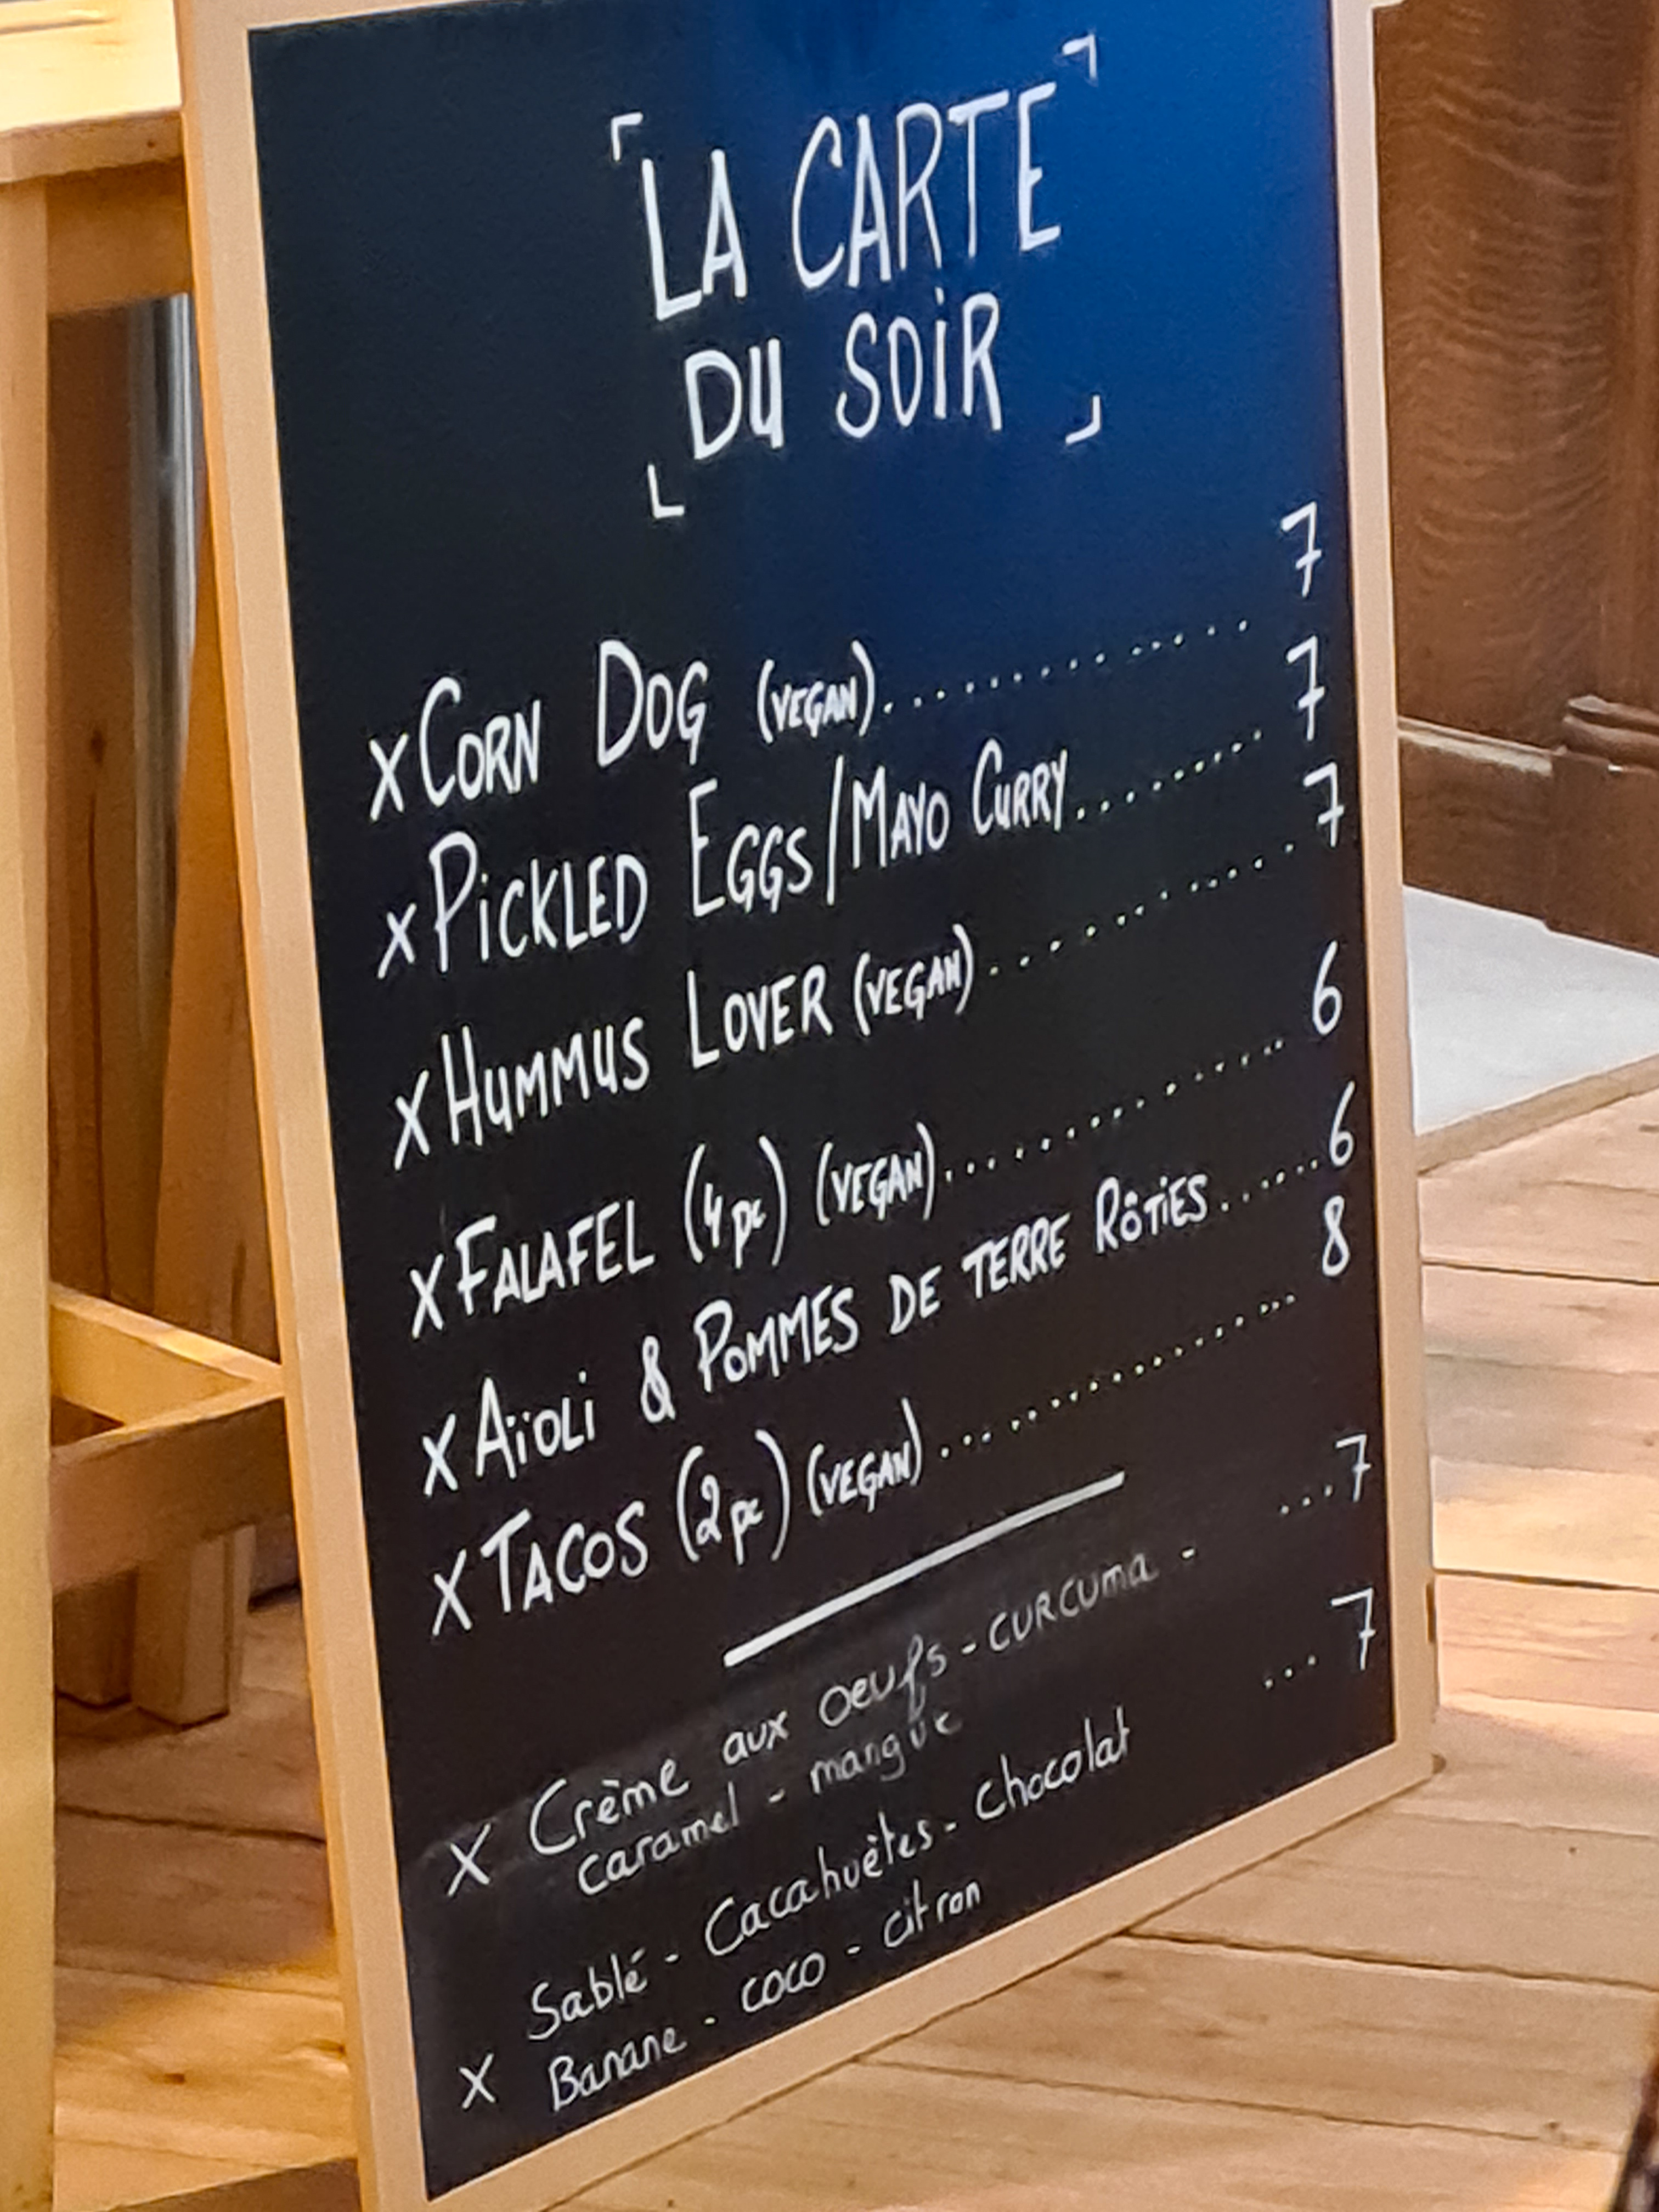 LA CARTE
DU SOIR
x CORN DOG (VEGAN).............. 7
x PICKLED EGGS/MAYO CURRY......... 7
x HUMMUS LOVER (VEGAN)............ 7
x FALAFEL (4 pc) (VEGAN)............... 6
x AÏOLI & POMMES DE TERRE RÔTIES...... 6
x TACOS (2 pc) (VEGAN).................. 8
x Crème aux oeufs - curcuma - ...7
caramel - mangue
x Sablé - Cacahuètes - chocolat ...7
Banane - coco - citron